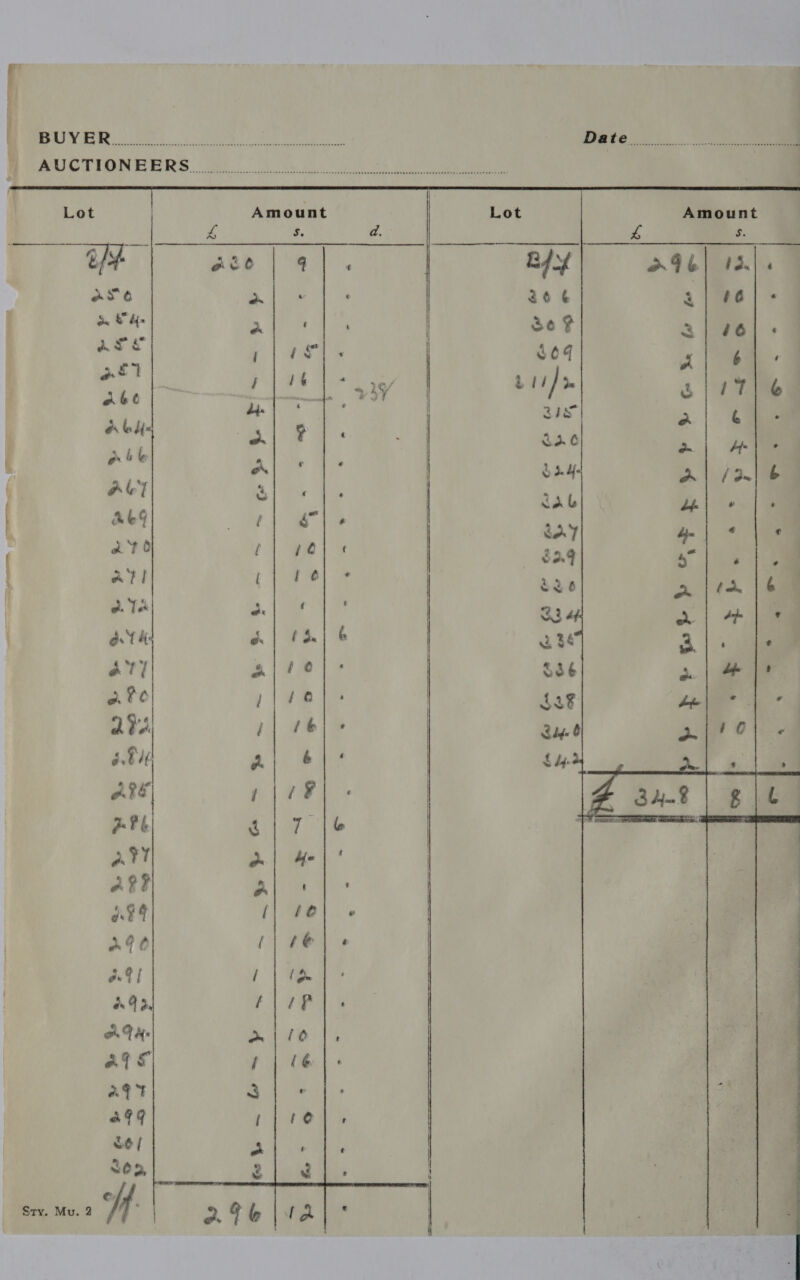 BUYER Date
AUCTIONEERS
Lot Amount
£ s. d.
B/F 230 9 .
250 2 . .
254 2 . .
255 1 15 .
257 1 16 .
260 4 . .
264 2 8 .
266 2 . .
267 3 . .
269 1 5 .
270 1 10 .
271 1 10 .
272 2 . .
274 2 12 6
277 2 10 .
280 1 10 .
282 1 16 .
284 2 6 .
285 1 18 .
286 3 7 6
287 2 4 .
288 2 . .
289 1 10 .
290 1 16 .
291 1 12 .
292 1 18 .
294 2 10 .
295 1 16 .
297 3 . .
299 1 10 .
301 2 . .
302 3 3 .
296 12 .
STY. MU. 2
Lot Amount
£ s.
B/F 296 12 .
306 3 10 .
308 3 10 .
309 2 6 .
311/2 3 17 6
315 2 6 .
320 2 4 .
324 2 12 6
326 4 . .
327 4 . .
329 5 . .
330 2 12 6
334 2 4 .
335 3 . .
336 2 4 .
338 4 . .
340 2 10 .
342 2 . .
£ 348 8 6